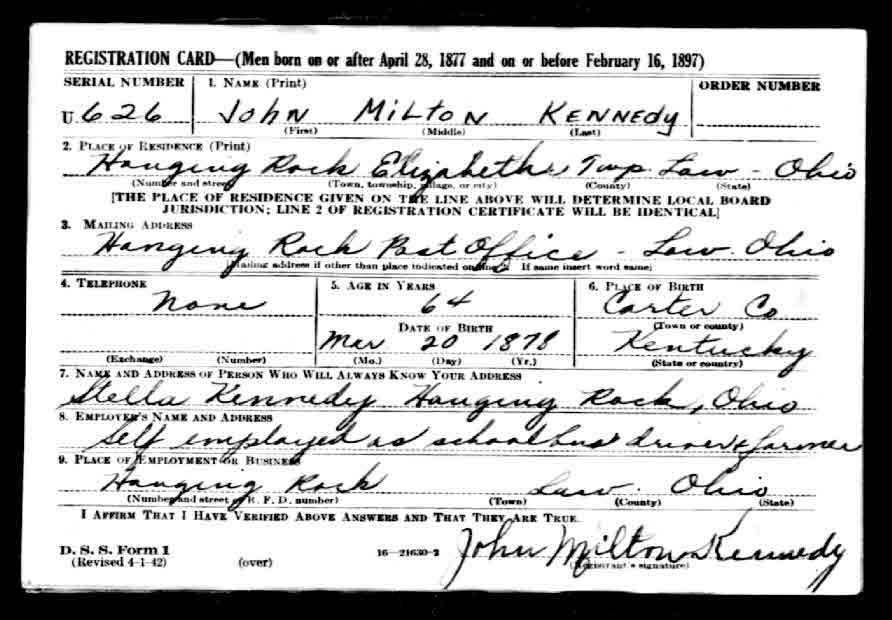 REGISTRATION CARD—(Men born on or after April 28, 1877 and on or before February 16, 1897)
SERIAL NUMBER 1. NAME (Print) ORDER NUMBER
U 626 JOHN MILTON KENNEDY
(First) (Middle) (Last)
2. PLACE OF RESIDENCE (Print)
Hanging Rock Elizabeth Twp. Law - Ohio
(Number and street) (Town, township, village, or city) (County) (State)
[THE PLACE OF RESIDENCE GIVEN ON THE LINE ABOVE WILL DETERMINE LOCAL BOARD
JURISDICTION; LINE 2 OF REGISTRATION CERTIFICATE WILL BE IDENTICAL]
3. MAILING ADDRESS
Hanging Rock Post Office - Law. Ohio
[Mailing address if other than place indicated on line 2. If same insert word same]
4. TELEPHONE 5. AGE IN YEARS 6. PLACE OF BIRTH
None 64 Carter Co
DATE OF BIRTH (Town or county)
Mar 20 1878 Kentucky
(Exchange) (Number) (Mo.) (Day) (Yr.) (State or country)
7. NAME AND ADDRESS OF PERSON WHO WILL ALWAYS KNOW YOUR ADDRESS
Stella Kennedy Hanging Rock, Ohio
8. EMPLOYER'S NAME AND ADDRESS
Self employed as school bus driver & farmer
9. PLACE OF EMPLOYMENT OR BUSINESS
Hanging Rock Law. Ohio
(Number and street or R. F. D. number) (Town) (County) (State)
I AFFIRM THAT I HAVE VERIFIED ABOVE ANSWERS AND THAT THEY ARE TRUE.
D. S. S. Form 1 16—21630-2 John Milton Kennedy
(Revised 4-1-42) (over) (Registrant's signature)